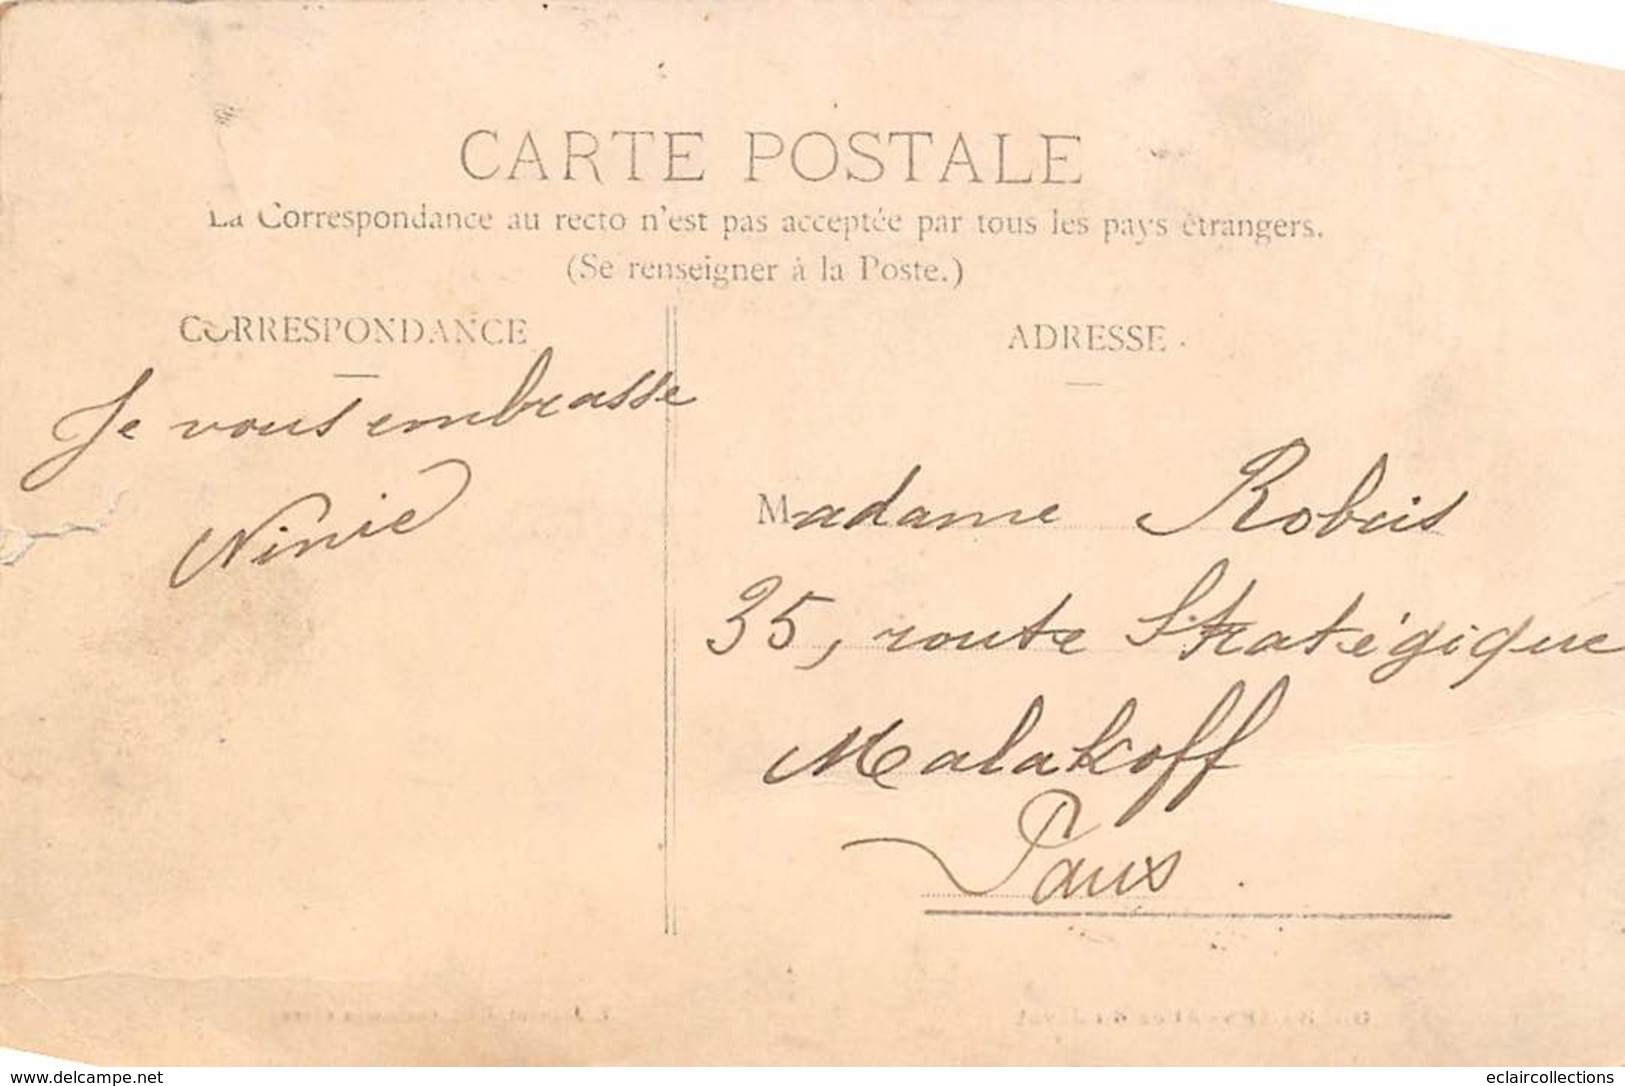 CARTE POSTALE
La Correspondance au recto n'est pas acceptée par tous les pays étrangers.
(Se renseigner à la Poste.)
CORRESPONDANCE
Je vous embrasse
Ninie
ADRESSE
Madame Robin
35, route Stratégique
Malakoff
Paris
www.delcampe.net
eclaircollections